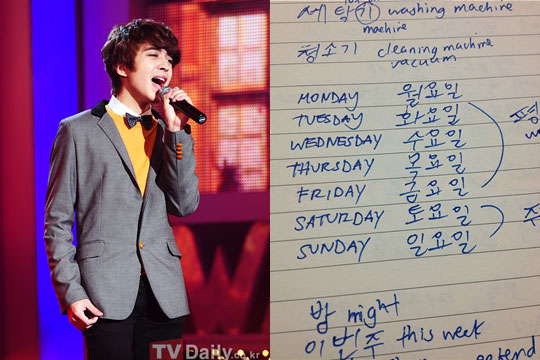 세탁기 washing machine
machine
청소기 cleaning machine
vacuum
MONDAY 월요일
TUESDAY 화요일
WEDNESDAY 수요일
THURSDAY 목요일
FRIDAY 금요일
SATURDAY 토요일
SUNDAY 일요일
밤 might
이번주 this week
TVDaily.co.kr